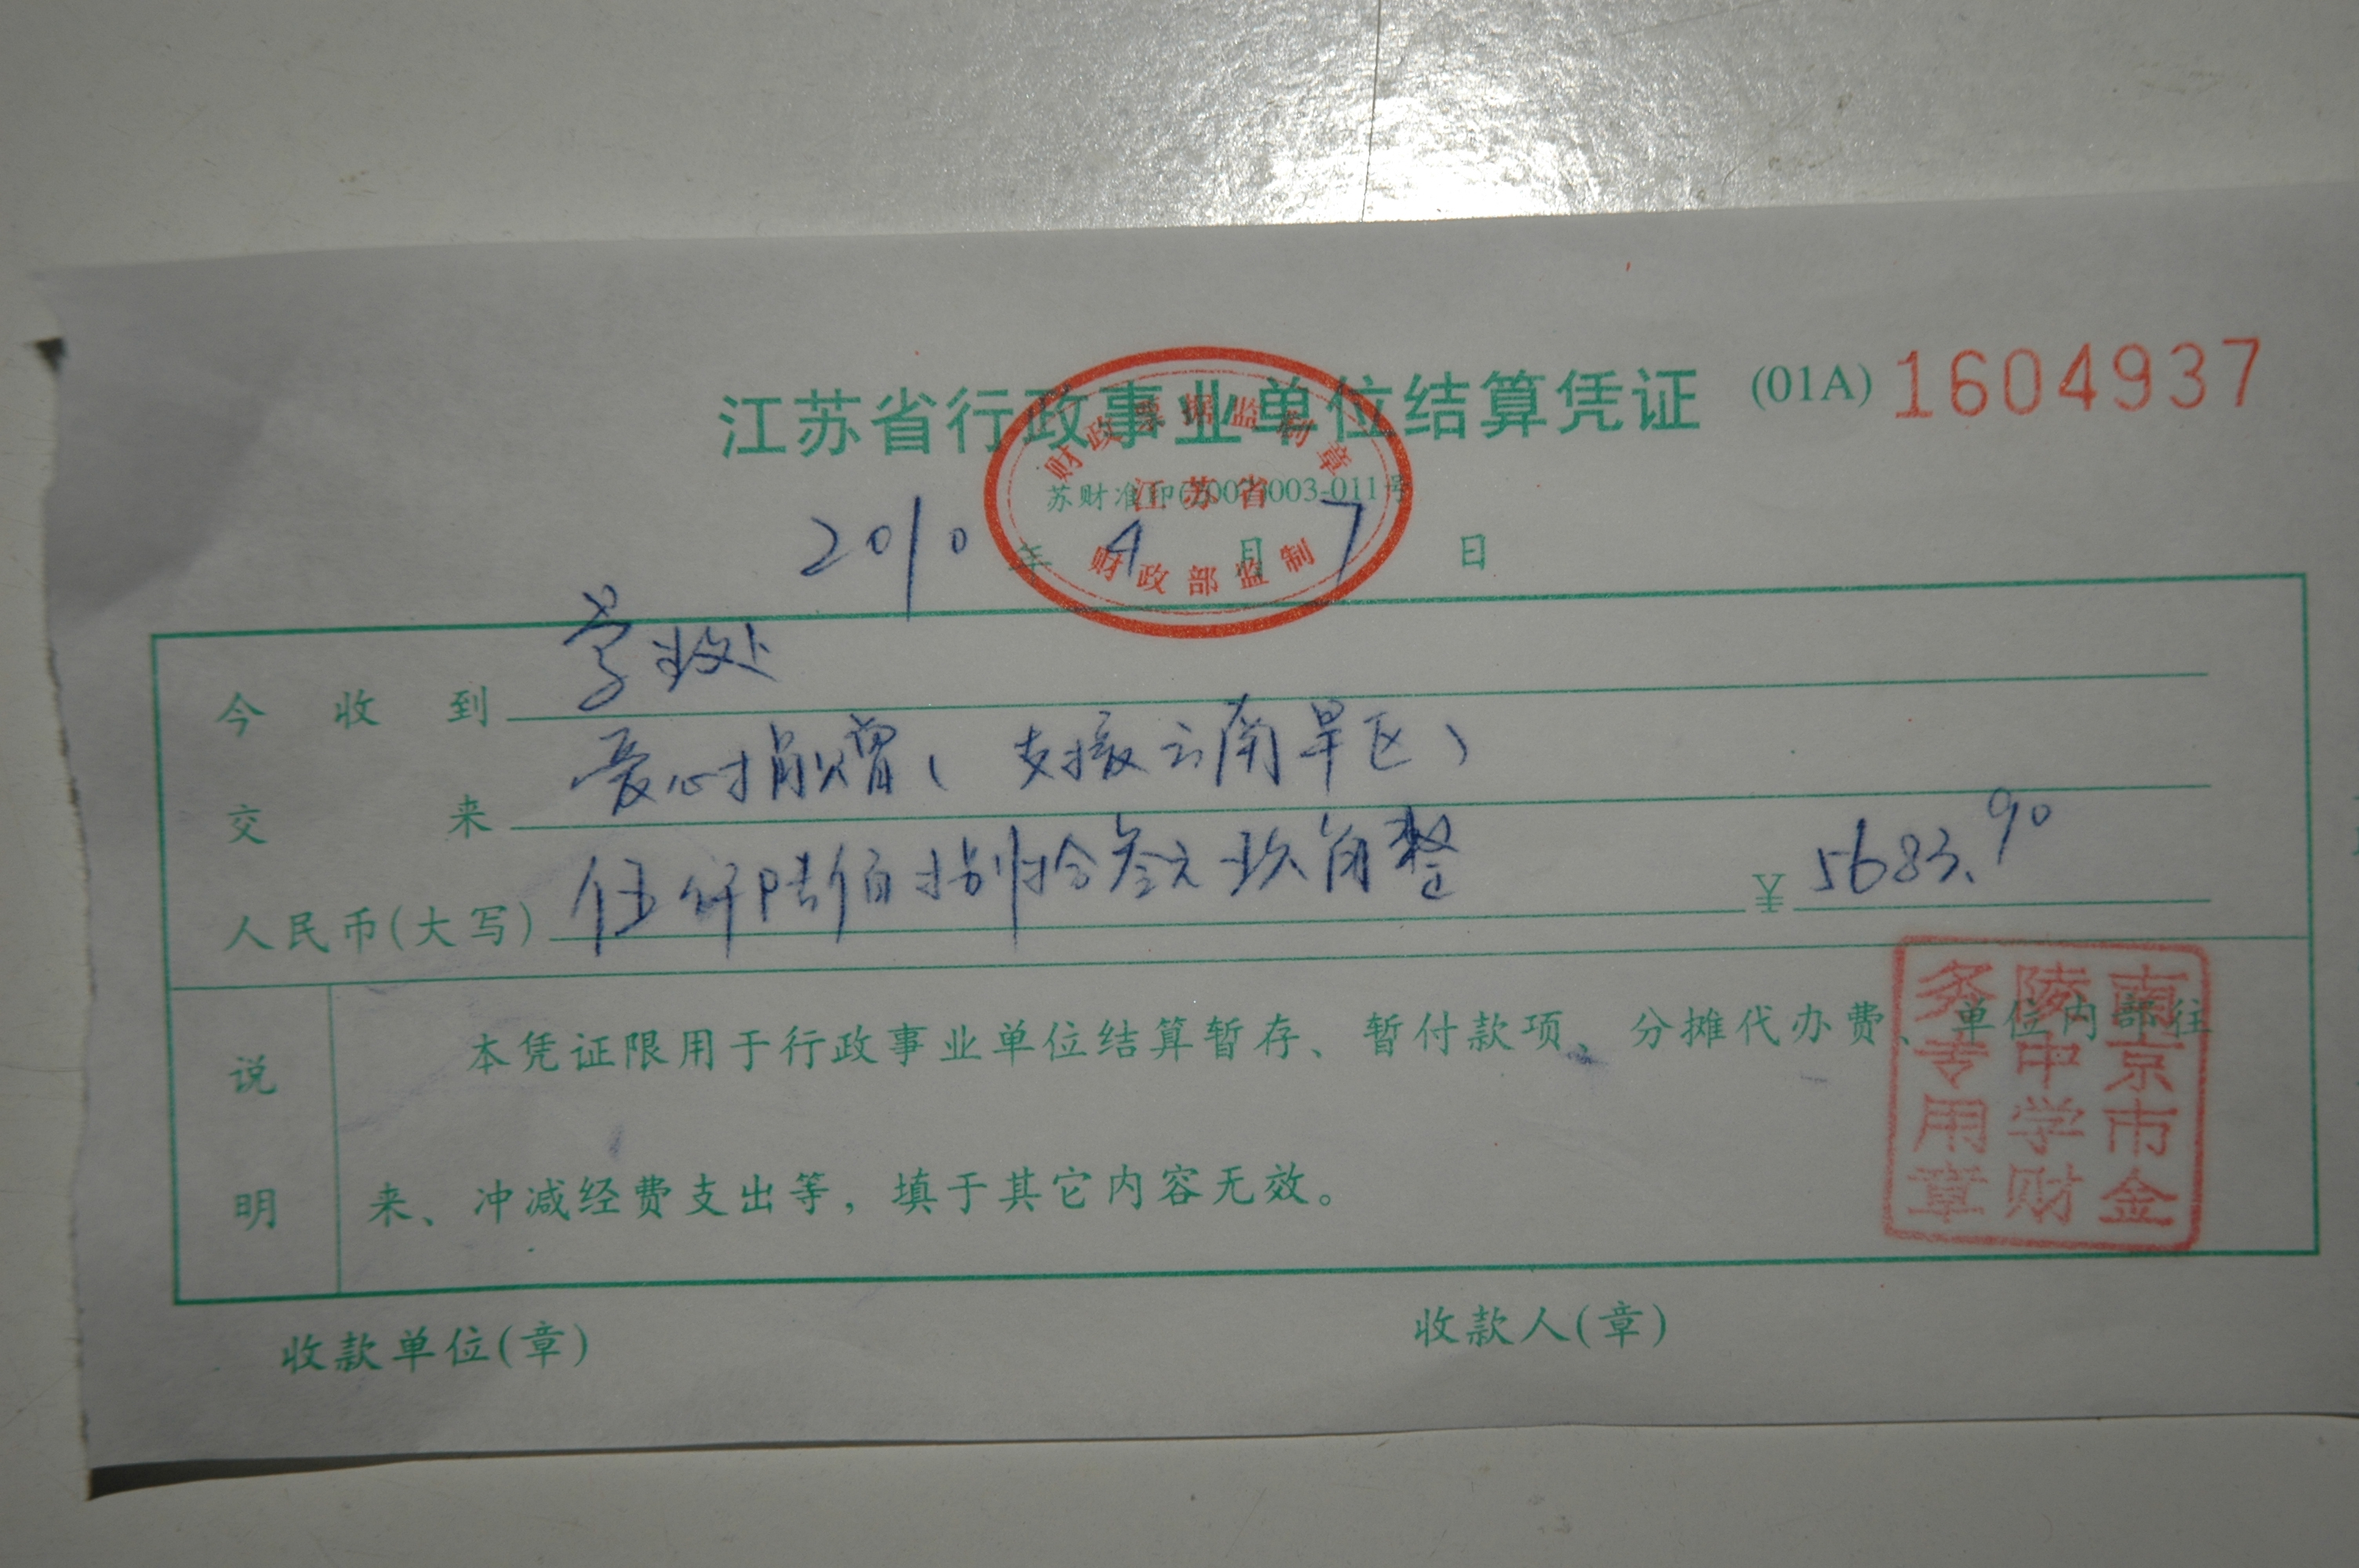 江苏省行政事业单位结算凭证 (01A) 1604937
财政票据监制章
江苏省
财政部监制
苏财准印(2002)003-011号
2010 年 4 月 7 日
今收到 学生处
交来 爱心捐赠(支援云南旱区)
人民币(大写) 伍仟陆佰捌拾叁元玖角整 ¥ 5683.90
说明
本凭证限用于行政事业单位结算暂存、暂付款项、分摊代办费、单位内部往
来、冲减经费支出等,填于其它内容无效。
南京市金
陵中学财
务专用章
收款单位(章) 收款人(章)